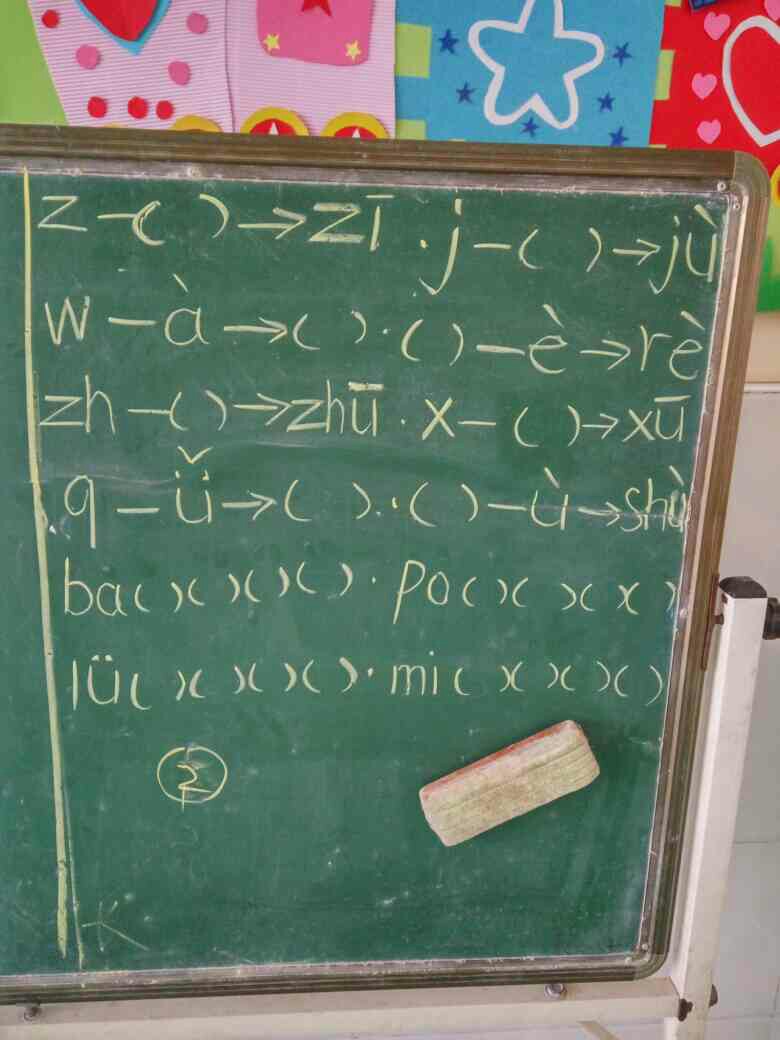 z－( )→zī．j－( )→jù
w－à→( )．( )－è→rè
zh－( )→zhū．x－( )→xū
q－ǚ→( )．( )－ù→shù
ba( )( )( )( )．po( )( )( )( )
lü( )( )( )( )．mi( )( )( )( )